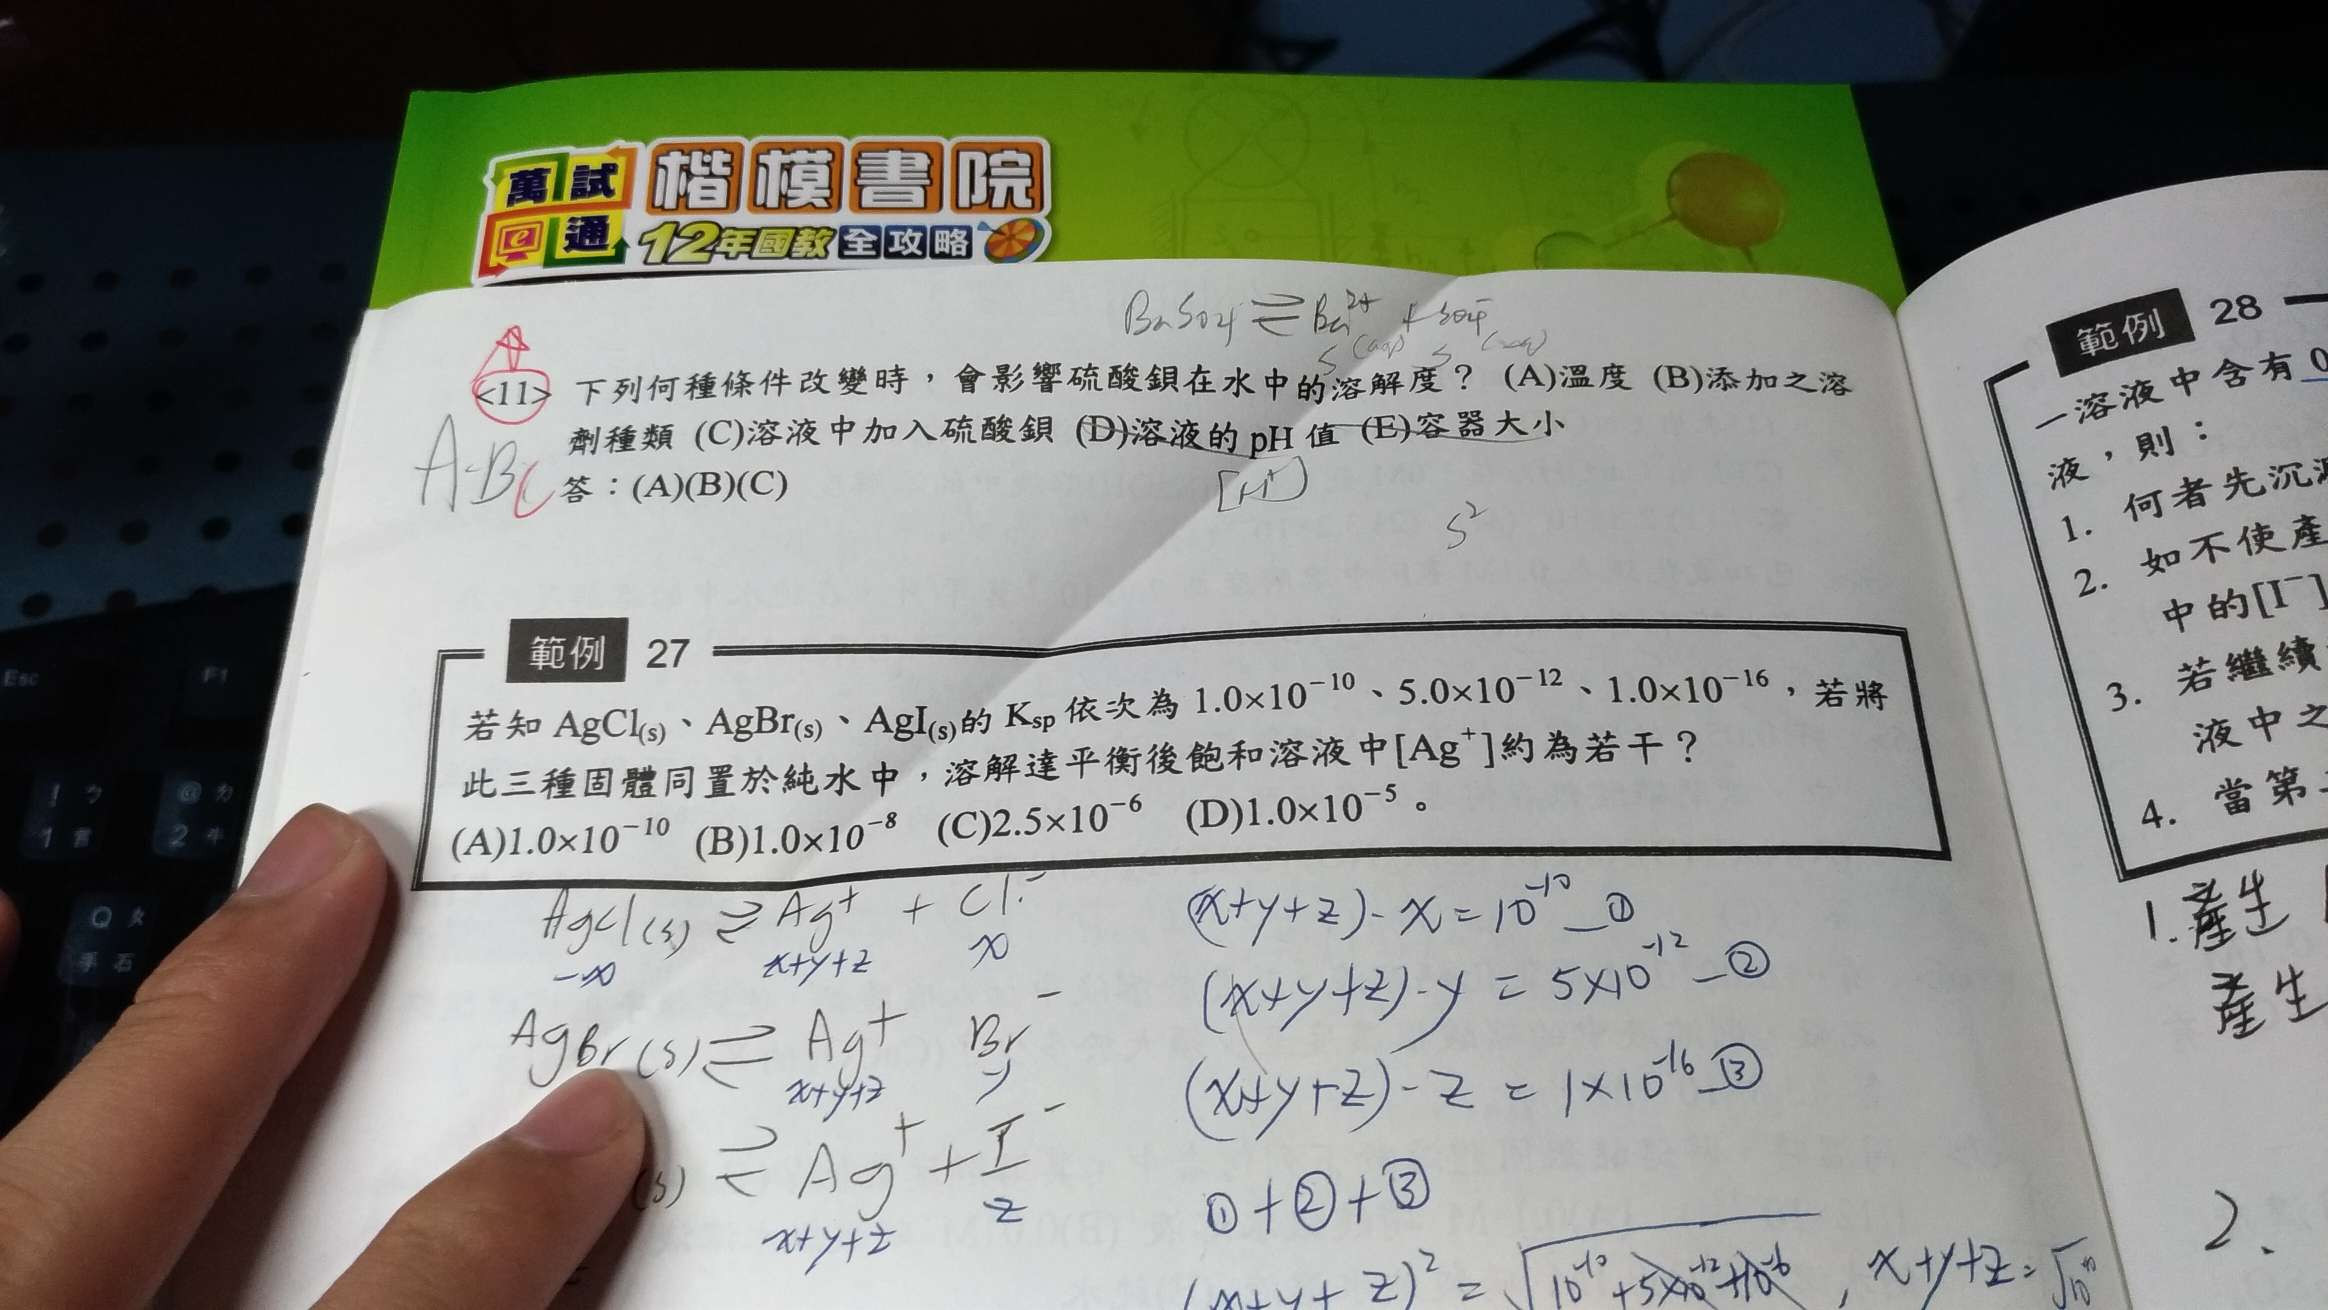 萬試e通 楷模書院
12年國教全攻略
BaSO4 ⇌ Ba²⁺ + SO4⁼
S (aq) S (aq)
<11> 下列何種條件改變時，會影響硫酸鋇在水中的溶解度？ (A)溫度 (B)添加之溶
劑種類 (C)溶液中加入硫酸鋇 (D)溶液的 pH 值 (E)容器大小
ABC
答：(A)(B)(C)
[H⁺]
S²
範例 27
若知 AgCl(s)、AgBr(s)、AgI(s)的 Ksp 依次為 1.0×10⁻¹⁰、5.0×10⁻¹²、1.0×10⁻¹⁶，若將
此三種固體同置於純水中，溶解達平衡後飽和溶液中[Ag⁺]約為若干？
(A)1.0×10⁻¹⁰ (B)1.0×10⁻⁸ (C)2.5×10⁻⁶ (D)1.0×10⁻⁵。
AgCl(s) ⇌ Ag⁺ + Cl⁻
-x x+y+z x
AgBr(s) ⇌ Ag⁺ Br⁻
x+y+z y
(s) ⇌ Ag⁺ + I⁻
x+y+z z
(x+y+z)·x = 10⁻¹⁰ —①
(x+y+z)·y = 5×10⁻¹² —②
(x+y+z)·z = 1×10⁻¹⁶ —③
①+②+③
(x+y+z)² = √10⁻¹⁰+5×10⁻¹²+10⁻¹⁶ , x+y+z=
範例 28
一溶液中含有 0
液，則：
1. 何者先沉澱
2. 如不使產
中的[I⁻]
3. 若繼續
液中之
4. 當第
1. 產生
產生
2.
Esc
F1
! ㄅ
1
@ ㄉ
2 牛
Q ㄆ
手 石